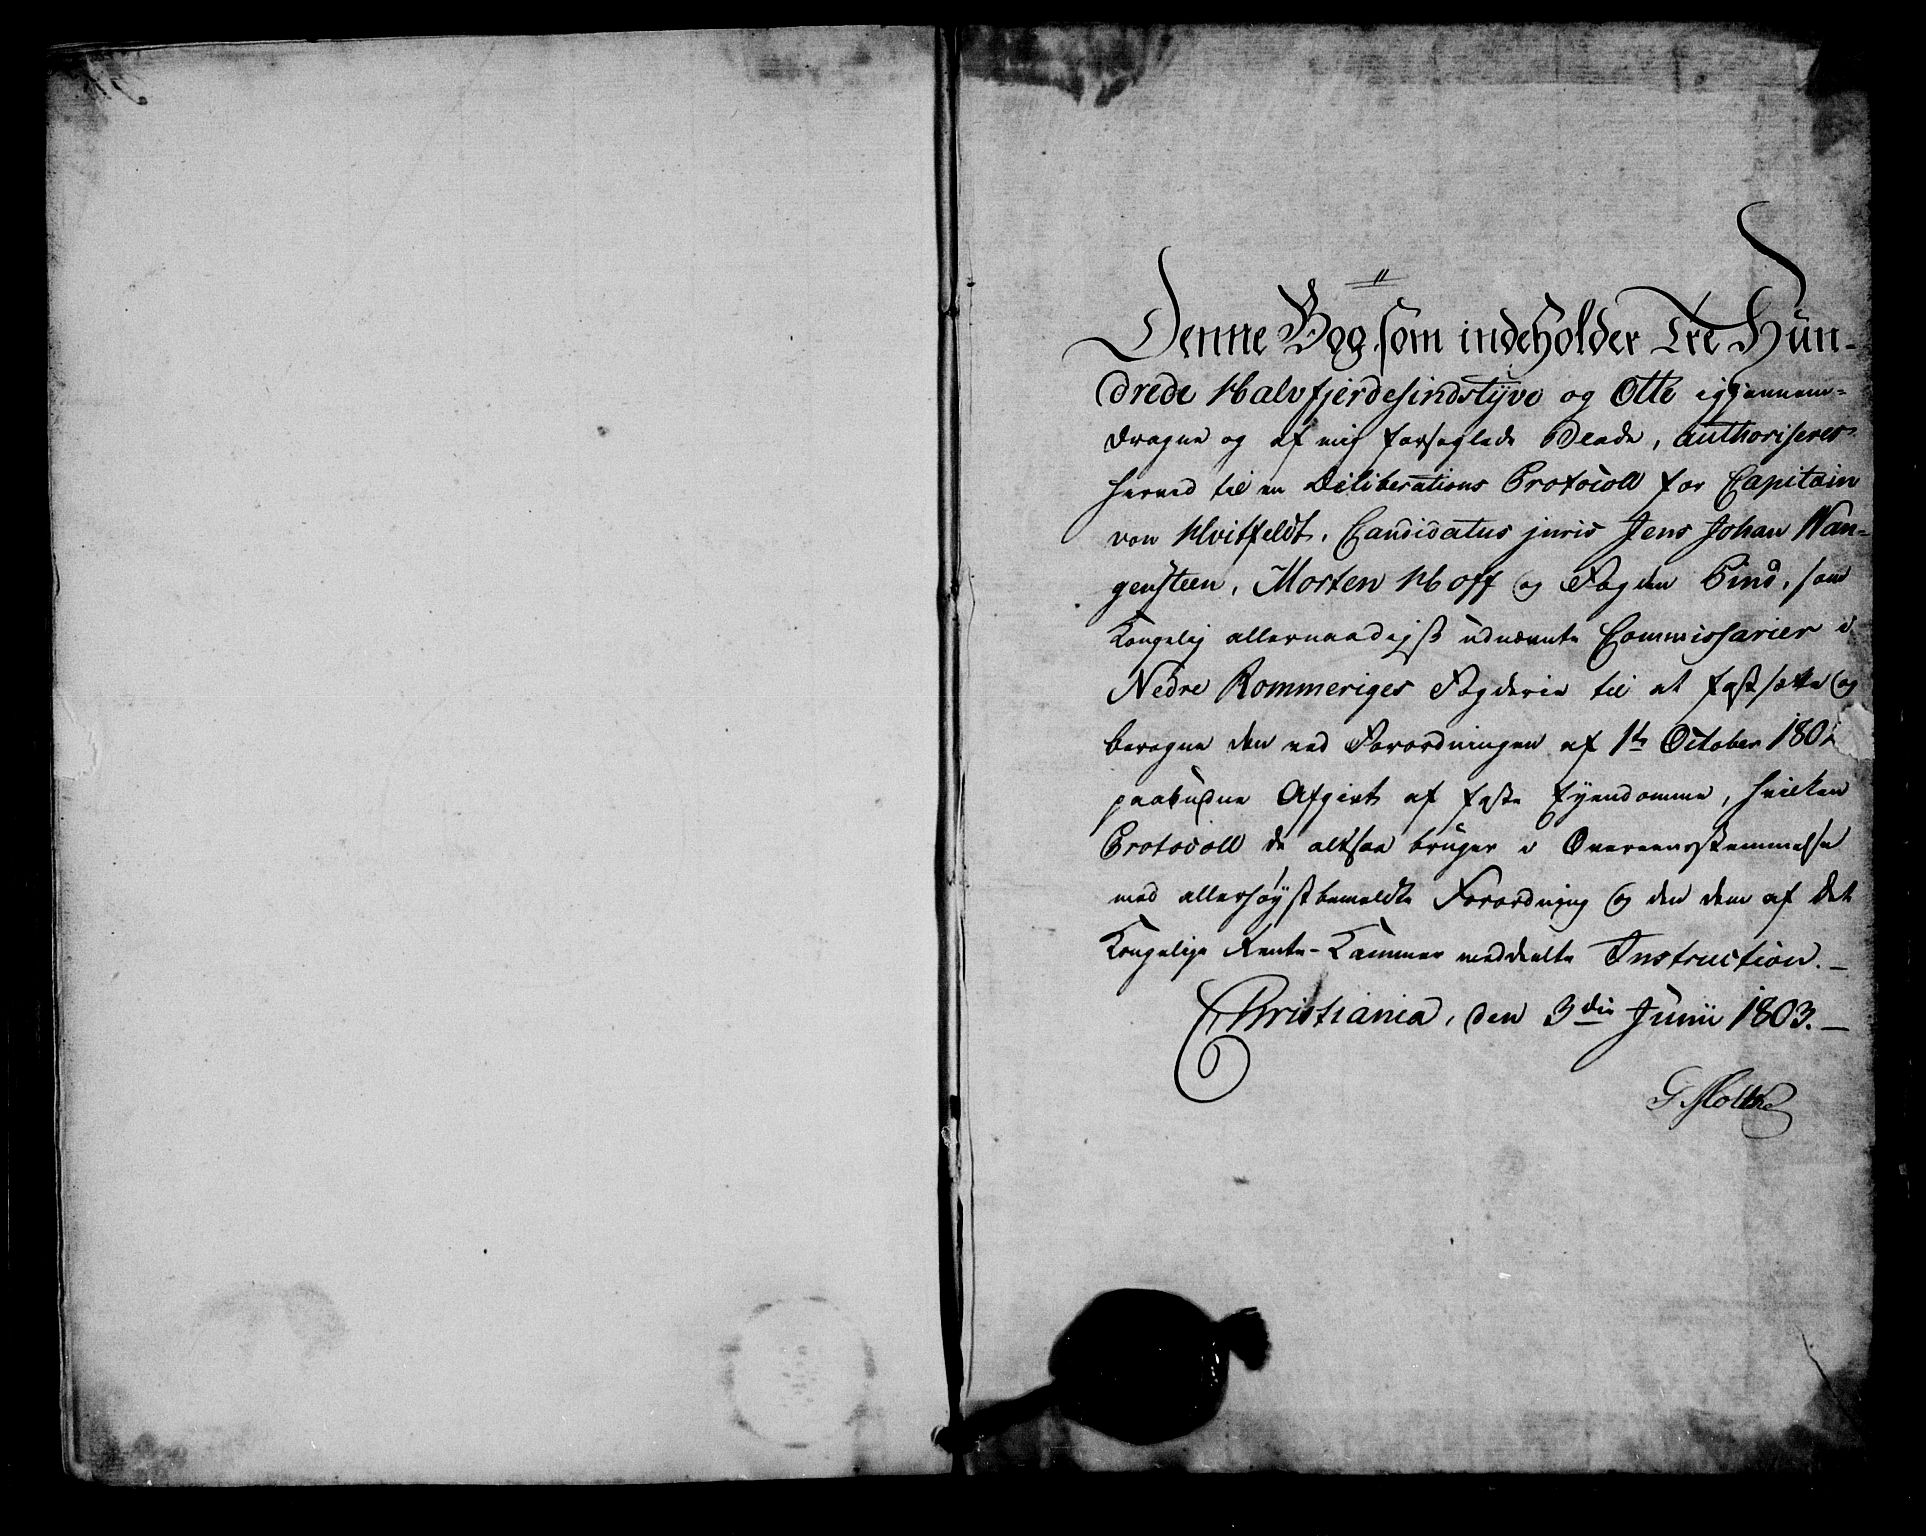 Denne Bog som indeholder Tre Hun-
drede Halvfjerdesindstyve og Otte igjennem-
dragne og af mig forseglede Blade, authoriseres
herved til en Deliberations Protocoll for Capitain
von Hvitfeldt, Candidatus juris Jens Johan Wan-
gensteen, Morten Hoff og Fogden Bind, som
Kongelig allernaadigst udnævnte Commissarier i
Nedre Rommeriges Fogderie til at fastsætte og
beregne den ved Forordningen af 1te October 1802
paabudne Afgivt af faste Eyendomme, hvilken
Protocoll de altsaa bruger i Overeensstemmelse
med allerhøystbemeldte Forordning og den dem af Det
Kongelige Rente-Kammer meddeelte Instruction.-
Christiania, den 3die Junii 1803.-
G. Moltke